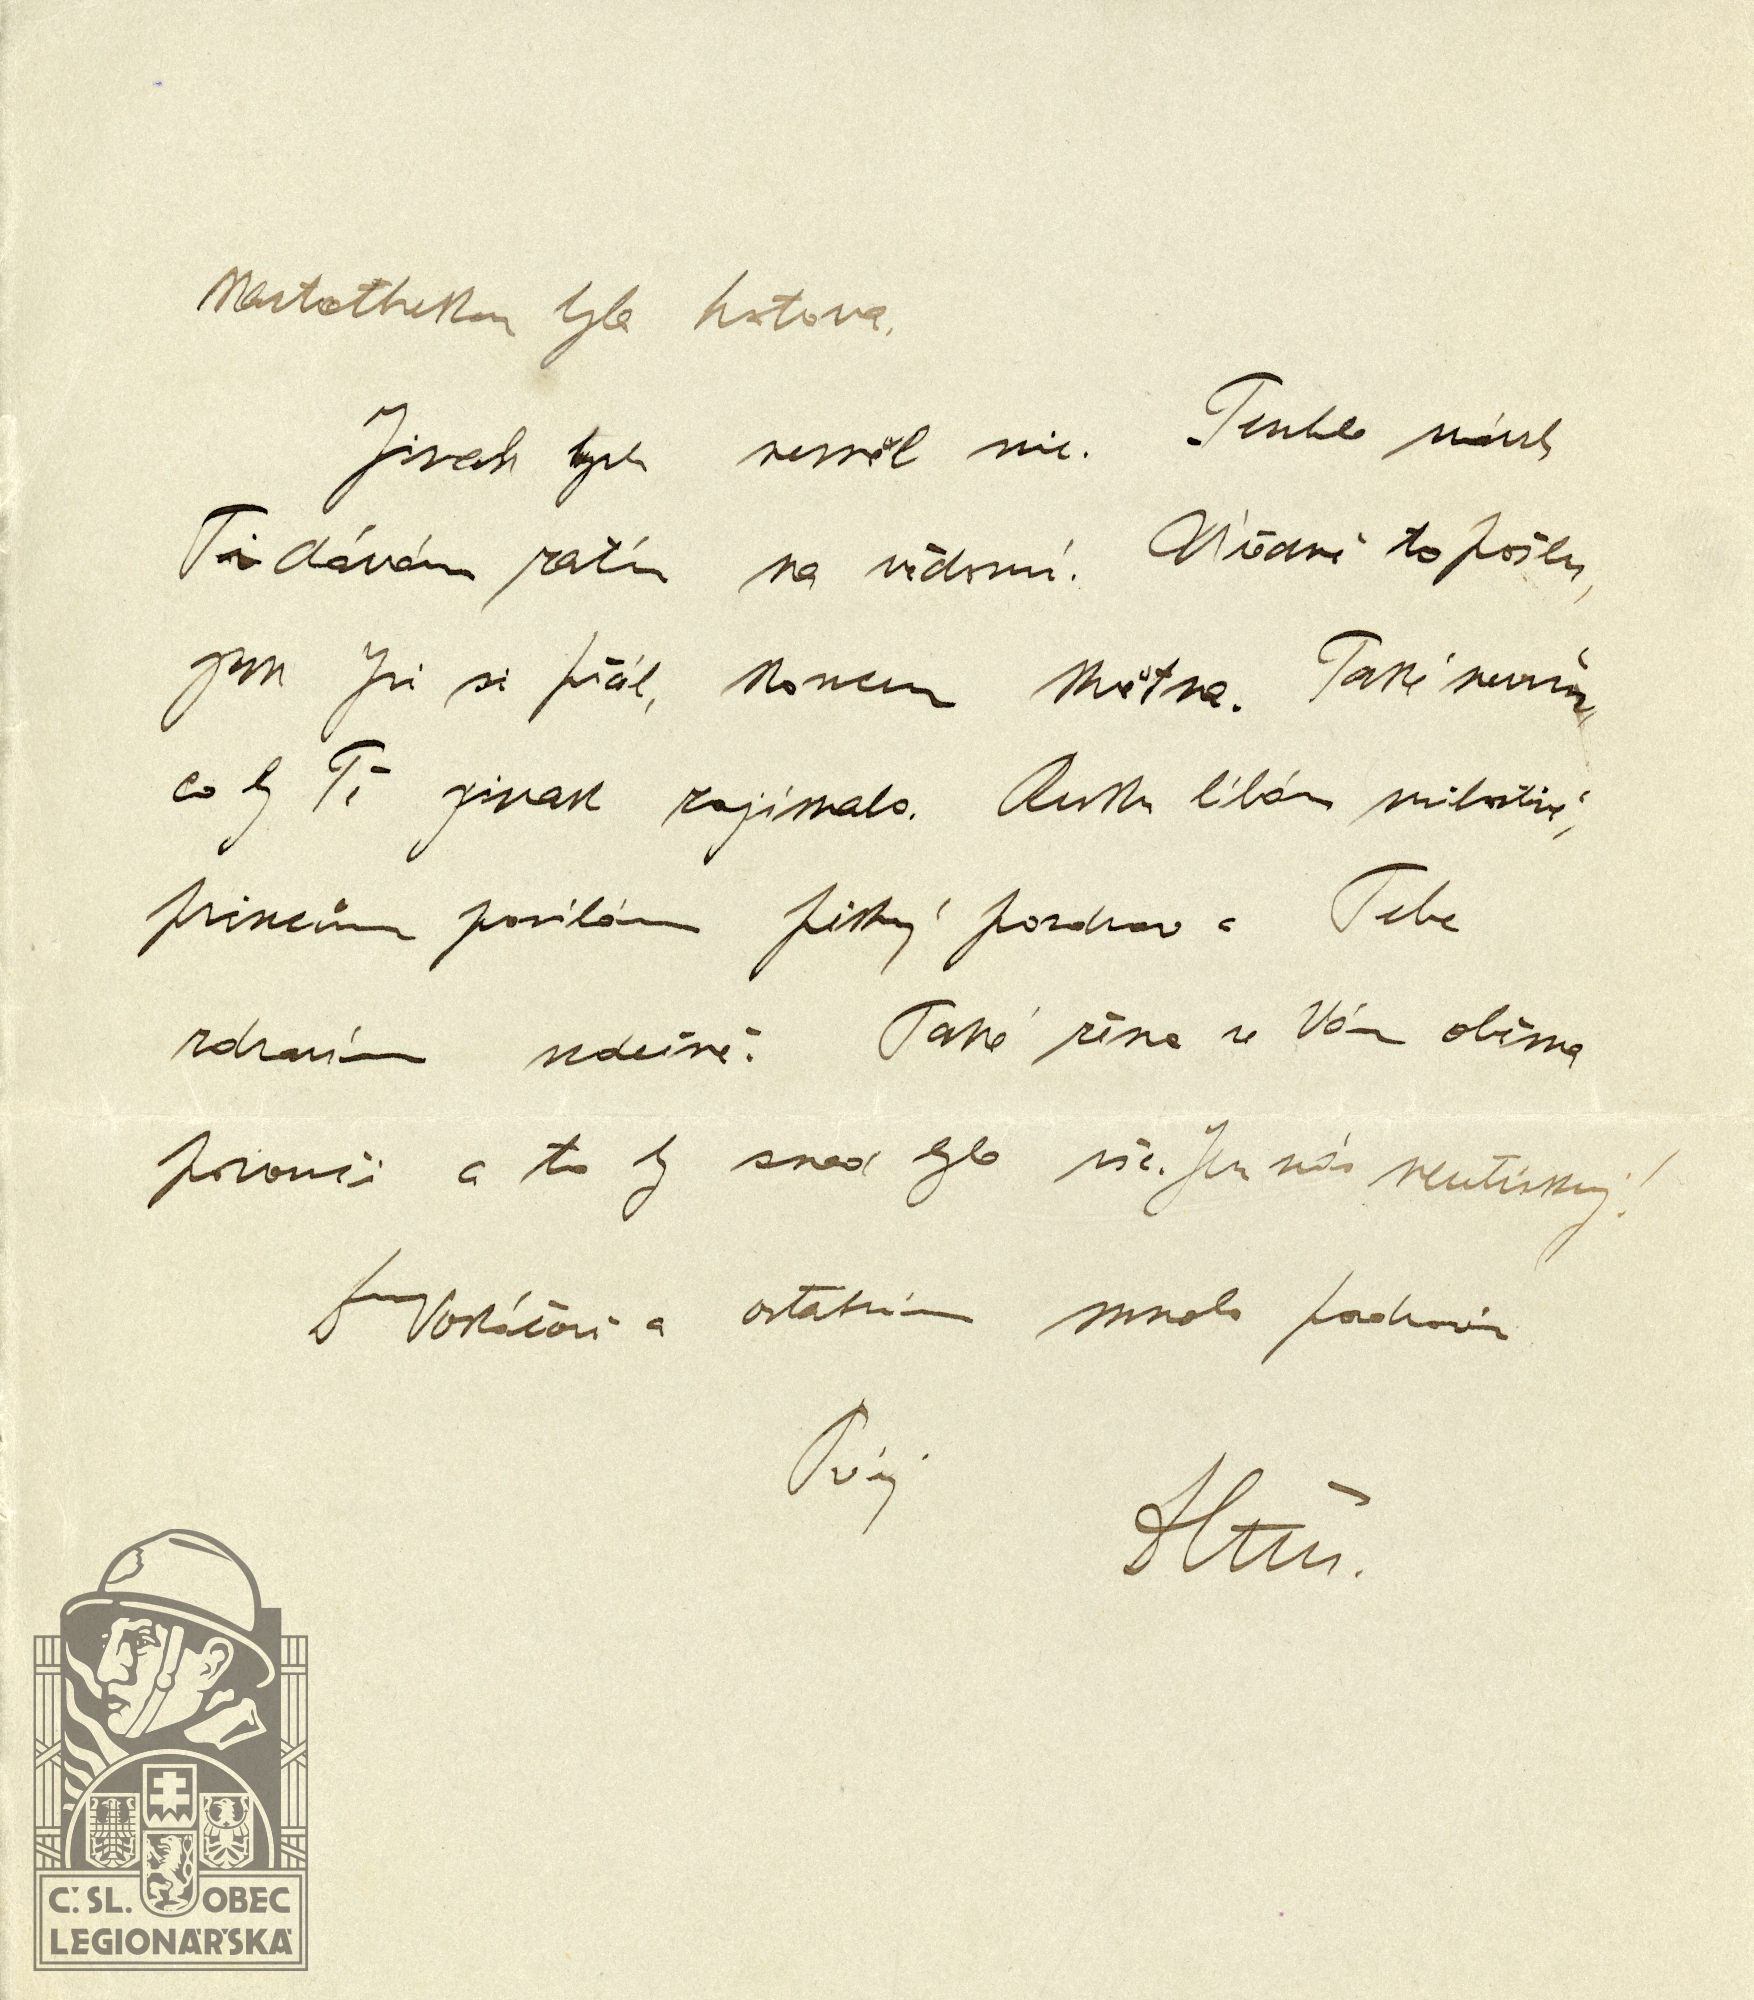 Kartotheka byla hotova.
Jinak bych neměl nic. Tenhle návrh
Ti dávám zatím na vědomí. Úředně to pošlu,
jak jsi si přál, koncem května. Také nevím,
co by Tě jinak zajímalo. Ruku líbám milostivé,
princům posílám pěkný pozdrav a Tebe
zdravím srdečně. Také žena se Vám oběma
poroučí a to by snad bylo vše. Jen nás neutiskuj!
Vosláčovi a ostatním mnoho pozdravů
Tvůj
C. SL. OBEC
LEGIONÁŘSKÁ